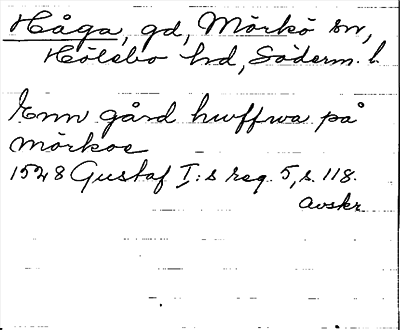 Håga, gd, Mörkö sn,
Hölebo hd, Söderm. l.
Enn gård hwffwa på
Mörkoe
1528 Gustaf I:s reg. 5, s. 118.
Avskr.